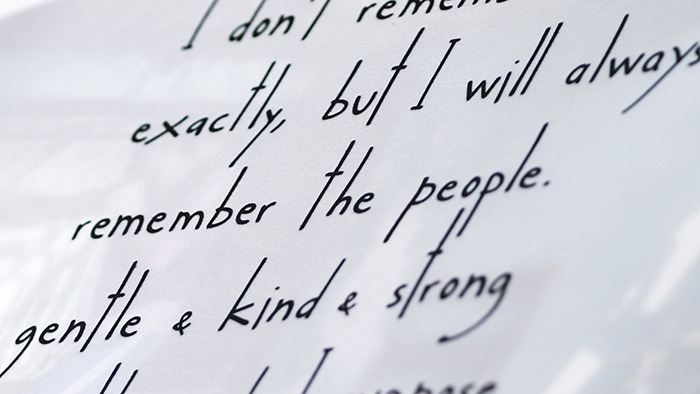 I don't remember
exactly, but I will always
remember the people.
gentle & kind & strong